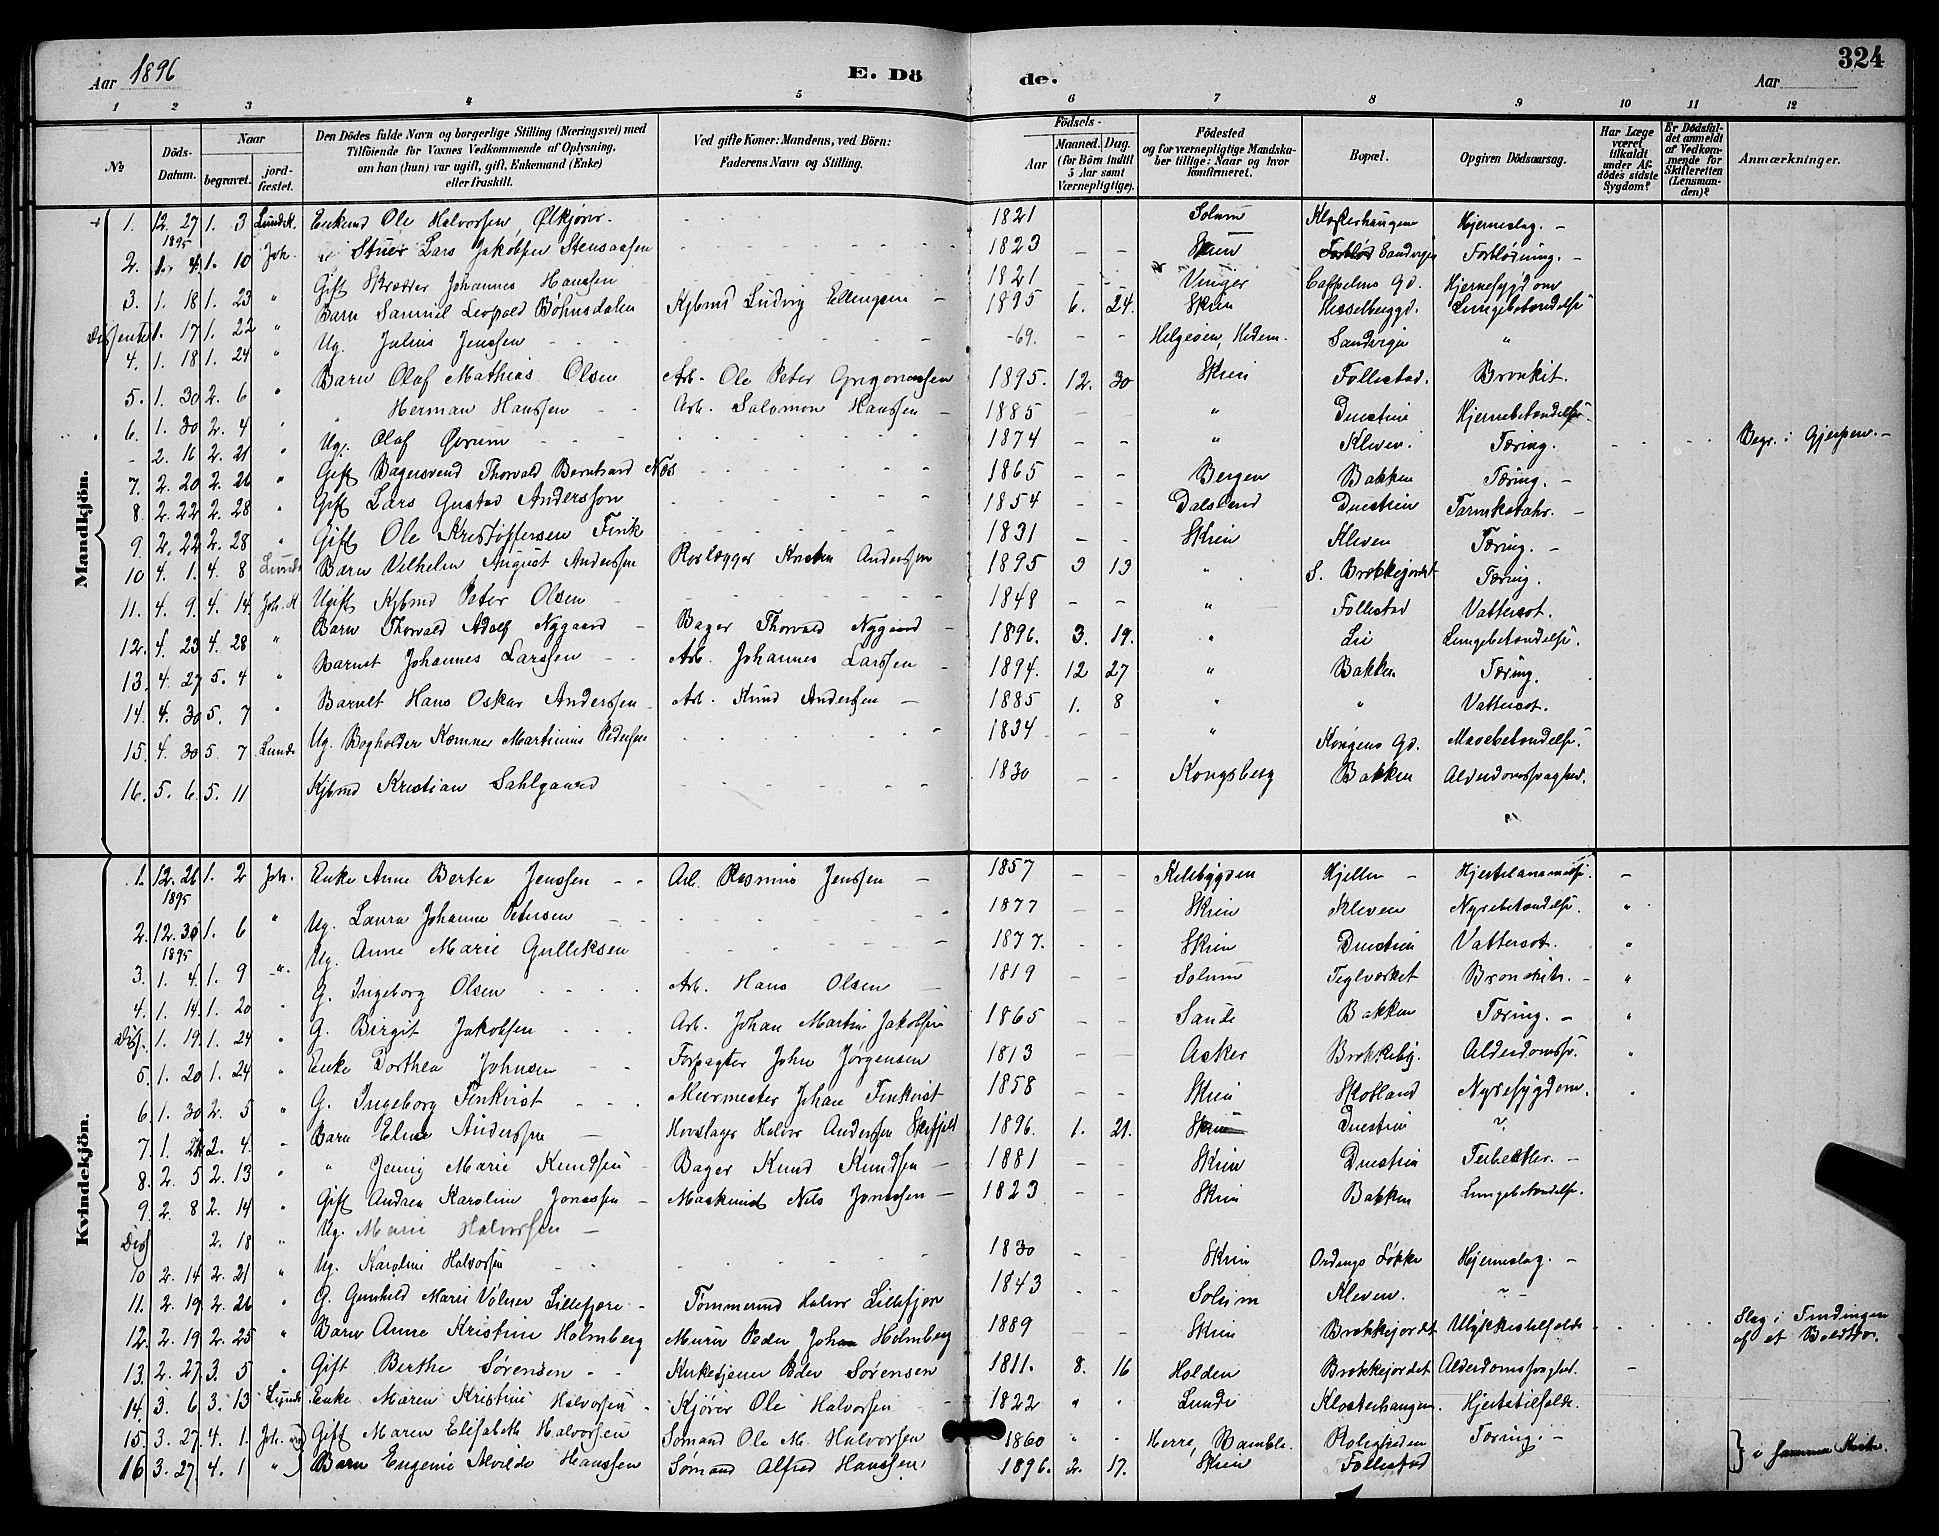 Aar 1896 E. Dö de. Aar 324
1 2 3 4 5 6 7 8 9 10 11 12
No Döds-Datum. Naar begravet. jordfæstet. Den Dödes fulde Navn og borgerlige Stilling (Næringsvei) med Tilföiende for Voxnes Vedkommende af Oplysning, om han (hun) var ugift, gift, Enkemand (Enke) eller fraskilt. Ved gifte Koner: Mandens, ved Börn: Faderens Navn og Stilling. Födsels- Aar Maaned. Dag. (for Börn indtil 5 Aar samt Værnepligtige). Födested og for værnepligtige Mandskaber tillige: Naar og hvor konfirmeret. Bopæl. Opgiven Dödsaarsag. Har Læge været tilkaldt under Afdödes sidste Sygdom? Er Dödsfaldet anmeldt af Vedkommende for Skifteretten (Lensmanden)? Anmærkninger.
Mandkjön.
1. 12. 27 1895 1. 3 Lunde K. Enkemd Ole Halvorsen, Ølkjører 1821 Solum Klosterhaugen Hjerneslag. –
2. 1. 4. 1. 10 Joh. Stuer Lars Jakobsen Stensaasen 1823 – – Skien Sandvigen Forblødning. –
3. 1. 18 1. 23 " Gift Skrædder Johannes Hanssen 1821 – – Vinger Cappelens Gd. Hjernesygdom
Dissenter 1. 17 1. 22 " Barn Samuel Leopold Bøhnsdalen Kjbmd Ludvig Ellingsen – 1895 6. 24. Skien Hesselberggd. Lungebetændelse
4. 1. 18 1. 24 " Ug. Julius Jenssen -69. – – Helgeøen, Hedem. Sandvigen "
5. 1. 30 2. 6 " Barn Olaf Mathias Olsen Arb. Ole Peter Gregoriussen 1895. 12. 30 Skien Follestad. Bronkit.
6. 1. 30 2. 4 " " Herman Hanssen Arb. Salomon Hanssen – 1885 – – " Duestien Hjernebetændelse
- 2. 16 2. 21 " Ug. Olaf Ørum 1874 – – " Kleven. Tæring. Begr. i Gjerpen. –
7. 2. 20 2. 26 " Gift Bagersvend Thorvald Bernhard Næs 1865 – – Bergen Bakken Tæring. –
8. 2. 22 2. 28 " Gift Lars Gustav Andersson 1854 – – Dalsland Duestien Tarmkatahr. –
9. 2. 22 2. 28 " Gift Ole Kristoffersen Fink 1831 – – Skien Kleven Tæring. –
10 4. 1. 4. 8 Lunde Barn Vilhelm August Anderssen Rørlægger Anderssen 1895 3 13 " S. Brekkejordet Tæring.
11. 4. 9. 4. 14 Joh. K Ugift Kjbmd Peter Olsen 1848 – – " Follestad Vattersot.
12. 4. 23 4. 28 " Barn Thorvald Adolf Nygaard – Bager Thorvald Nygaard – 1896. 3. 19. " Lie Lungebetændelse.
13. 4. 27 5. 4 " Barnet Johannes Larssen Arb. Johannes Larssen – 1894. 12 27 " Bakken Tæring.
14. 4. 30 5. 7 " Barnet Hans Oskar Anderssen Arb. Knud Anderssen – 1885 1. 8 " " Vattersot.
15. 4. 30 5. 7 Lunde Ug. Bogholder Kæmner Martinius Pedersen 1834 – – " Kongens Gd. Mavebetændelse.
16. 5. 6. 5. 11 Kjbmd Kristian Sahlgaard 1830 – – Kongsberg Bakken Alderdomssvaghed.
Kvindekjön.
1. 12. 26 1895 1. 2 Joh. Enke Anne Bertea Jenssen Arb. Rasmus Jenssen – 1857 – – Kilebygden Hjellen –
2. 12. 30 1895 1. 6 " Ug. Laura Johanne Petersen 1877 – – Skien Kleven Nyrebetændelse. "
3. 1. 4. 1. 9 " Ug. Anne Marie Gulliksen 1877. – – Skien Duestien Vattersot. "
4. 1. 14. 1. 20 " G. Ingeborg Olsen Arb. Hans Olsen – 1819 – – Solum Teglverket Bronchit. – "
Diss. 1. 19. 1. 24 " G. Birgit Jakobsen Arb. Johan Martin Jakobsen 1865 – – Sande Bakken Tæring. – "
5. 1. 20 1. 24 " Enke Dorthea Johnsen Forpagter John Jørgensen 1813 – – Asker Brekkeby. Alderdomssv. "
6. 1. 30 2. 5 " G. Ingeborg Finkvist Murmester Johan Finkvist 1858 – – Skien Skotland Nyresygdom. "
7. 1. 2. 4. – Barn Eline Anderssen – Hovslager Halvor Anderssen 1896. 1. 21. Skien Duestien "
8. 2. 5 2. 13 " " Jenny Marie Knudsen – Bager Knud Knudsen – 1881 – – Skien Duestien Tuberkler. –
9. 2. 8 2. 14 " Gift Andrea Karoline Jonassen – Maskinist Nils Jonassen – 1823 – – Skien Bakken Lungebetændelse.
Diss 2. 18 " Ug. Marie Halvorsen –
10 2. 14 2. 21 " Ug. Karoline Halvorsen 1830 – – Skien Ordings Løkke Hjerneslag. –
11. 2. 19. 2. 26 " G. Gunhild Marie Volner Lillefjære – Tømmermd Halvor Lillefjær 1843 – – Solum Kleven. "
12. 2. 19 2. 25 " Barn Anne Kristine Holmberg Murer Peder Johan Holmberg 1889 – – Skien Brekkejordet Ulykkestilfælde Slag i Tindingen af et Boldtræ.
13. 2. 27 3. 5 " Gift Berthe Sørensen Kirketjener Peder Sørensen 1811. 8. 16 Holden Brekkejordet Alderdomssvaghed. –
14. 3. 6 3. 13 Lunde Enke Maren Kristine Halvorsen Kjører Ole Halvorsen 1822 " " Lunde Klosterhaugen. Hjertetilfælde.
15. 3. 27. 4. 1. Joh. Gift Maren Elisabeth Halvorsen Sømand Ole M. Halvorsen 1860 " " Herre, Bamble. Roligheden Tæring. –
16 3. 27. 4. 1 " Barn Eugenie Alvilde Hanssen Sømand Alfred Hanssen 1896. 2. 17. Skien Follestad } i samme Kiste.